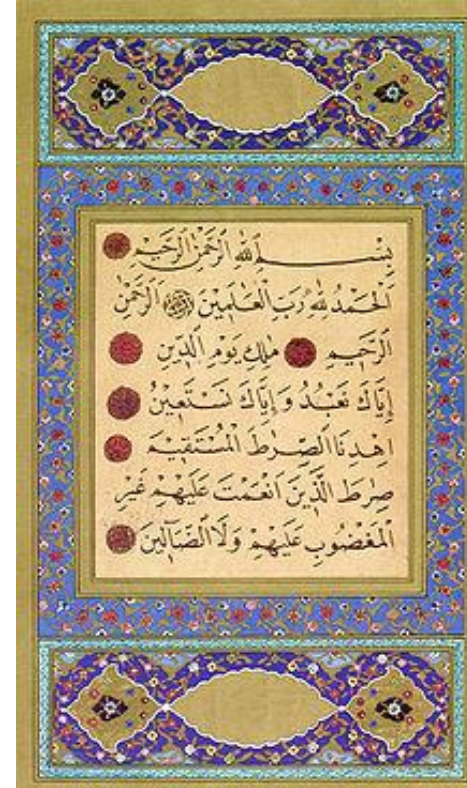 بِسْمِ اللّٰهِ الرَّحْمٰنِ الرَّحِيمِ
اَلْحَمْدُ لِلّٰهِ رَبِّ الْعَالَمِينَ الرَّحْمٰنِ
الرَّحِيمِ مٰلِكِ يَوْمِ الدِّينِ
إِيَّاكَ نَعْبُدُ وَإِيَّاكَ نَسْتَعِينُ
اِهْدِنَا الصِّرٰطَ الْمُسْتَقِيمَ
صِرٰطَ الَّذِينَ اَنْعَمْتَ عَلَيْهِمْ غَيْرِ
الْمَغْضُوبِ عَلَيْهِمْ وَلَا الضَّٓالِّينَ